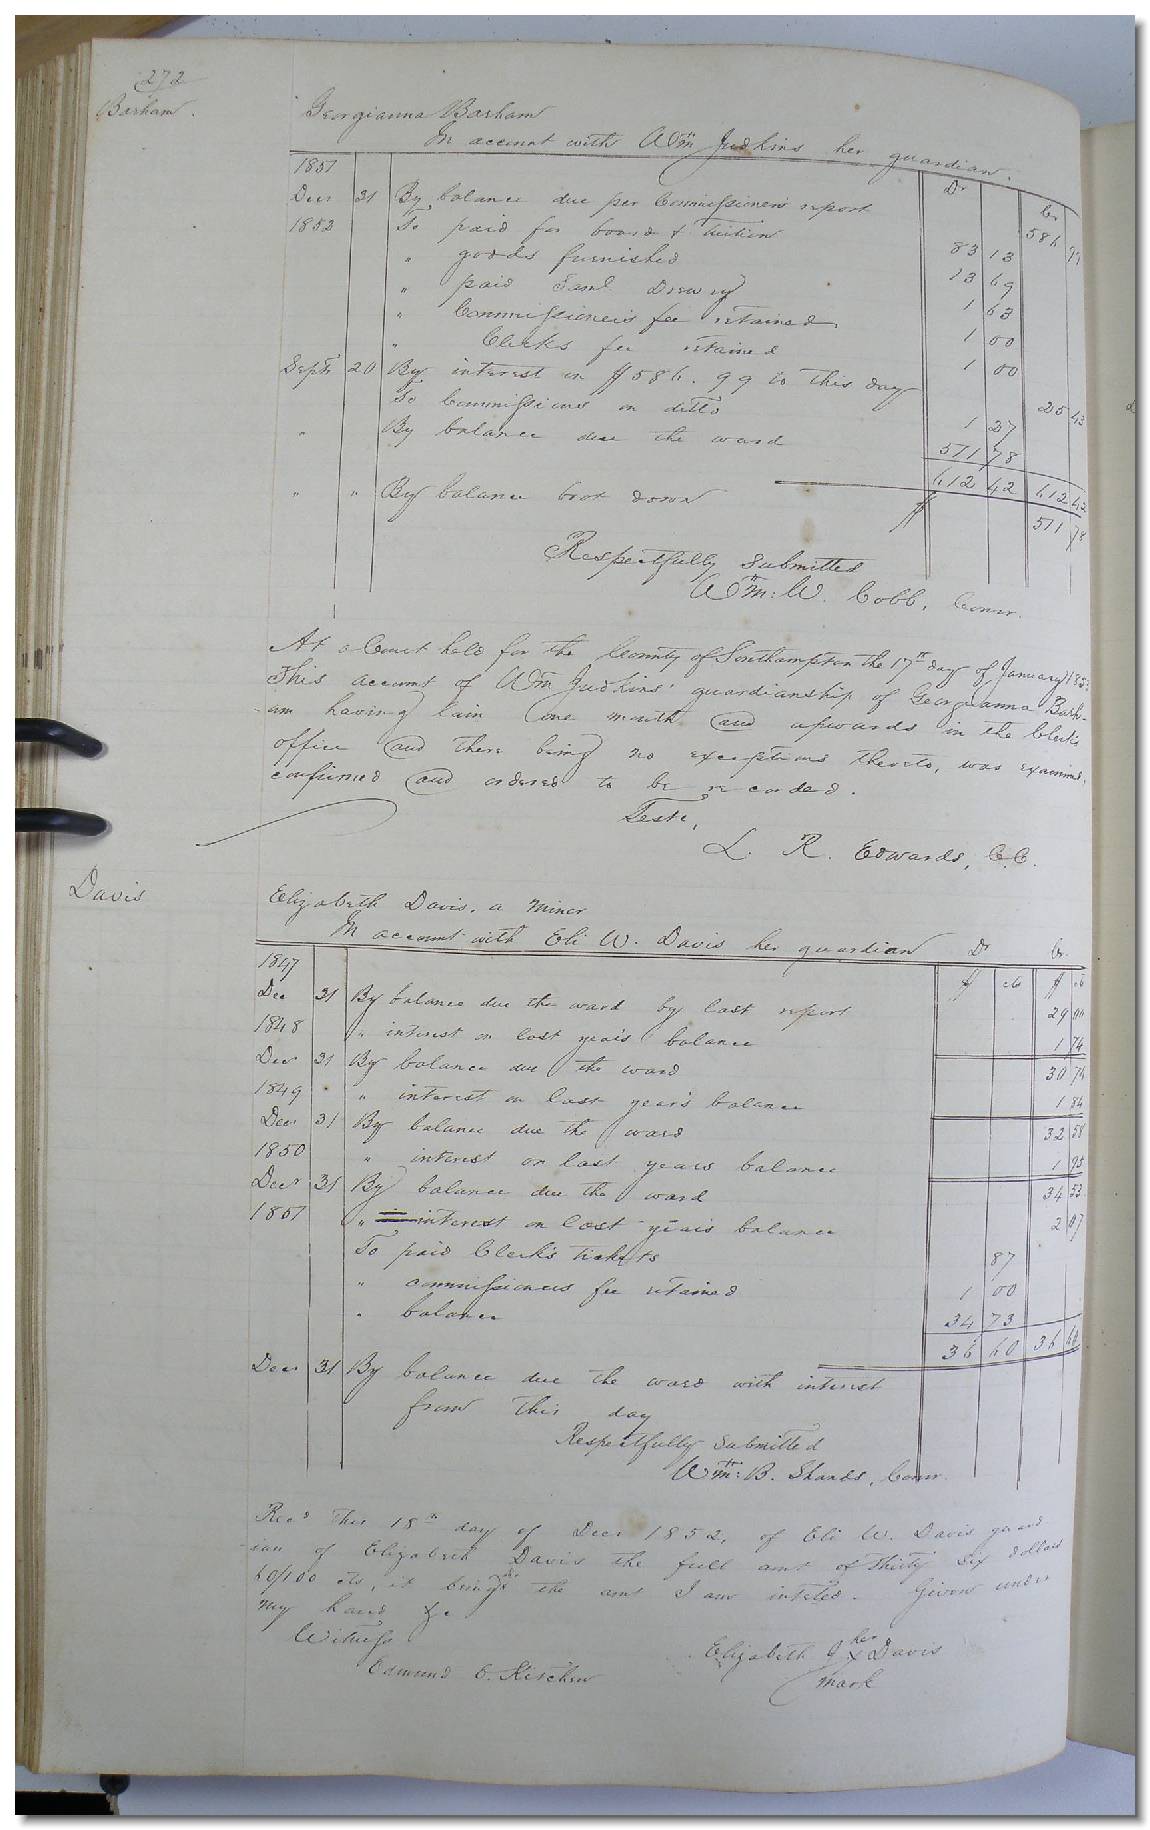 272
Barham.
Georgianna Barham
In account with Wm Judkins her guardian.
Dr Cr
1851
Decr 31 By balance due per Commissioners report 586 99
1852 To paid for board & tuition 83 13
" goods furnished 13 69
" paid Saml Drewry 1 63
" Commissioners fee retained 1 00
" Clerks fee retained 1 00
Septr 20 By interest on $586.99 to this day 25 43
To Commissions on ditto 1 27
" By balance due the ward 511 78
612 42 612 42
" " By balance brot down $ 511 78
Respectfully submitted
Wm: W. Cobb, Comr.
At a Court held for the County of Southampton the 17th day of January 1853
This account of Wm Judkins' guardianship of Georgianna Barh-
am having lain one month and upwards in the Clerks
office and there being no exceptions thereto, was examined,
confirmed and ordered to be recorded.
Teste,
L. R. Edwards, C.C.
Davis
Elizabeth Davis, a minor
In account with Eli W. Davis her guardian Dr Cr.
1847 $ cts $ cts
Dec 31 By balance due the ward by last report 29 00
1848 " interest on last years balance 1 74
Decr 31 By balance due the ward 30 74
1849 " interest on last years balance 1 84
Decr 31 By balance due the ward 32 58
1850 " interest on last years balance 1 95
Decr 31 By balance due the ward 34 53
1851 " interest on last years balance 2 07
To paid Clerk's tickets 87
" commissioners fee retained 1 00
" balance 34 73
36 60 36 60
Decr 31 By balance due the ward with interest
from this day
Respectfully submitted
Wm: B. Shands, Comr.
Recd this 18th day of Decr 1852, of Eli W. Davis guard-
ian of Elizabeth Davis the full amt of Thirty six dollars
60/100 cts, it being the amt I am intitled. Given under
my hand &c
Witness
Elizabeth her x Davis
mark
Edmund C. Kitchen